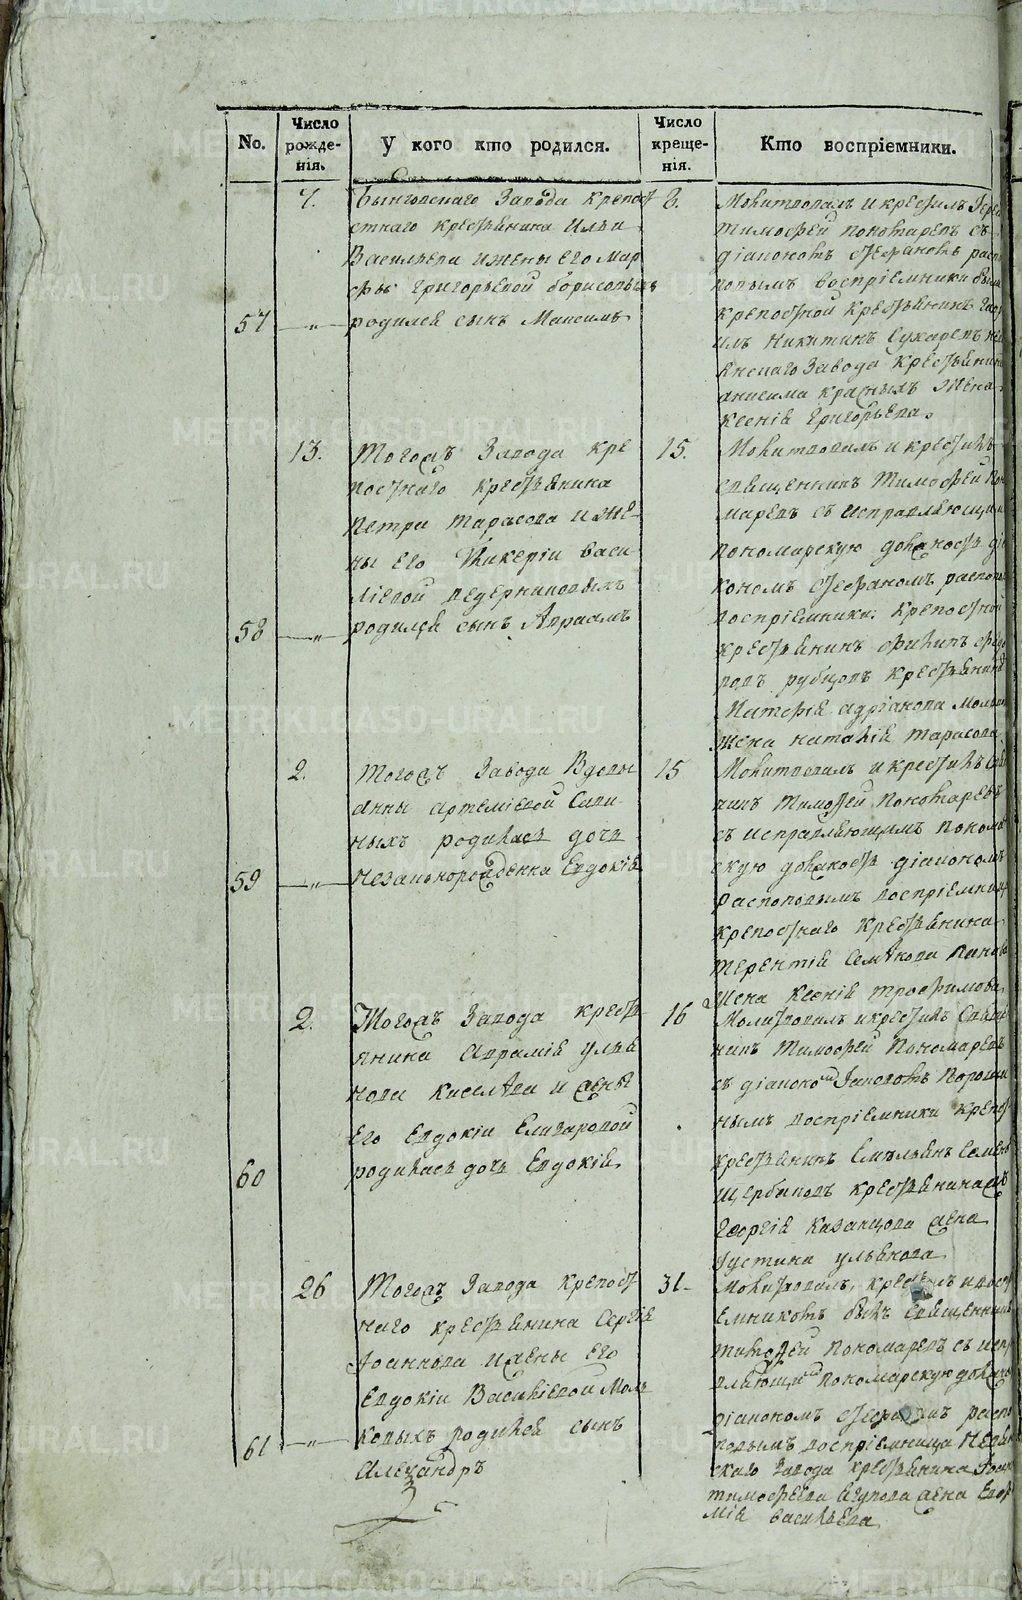 No.
Число рожде-нія.
У кого кто родился.
Число креще-нія.
Кто воспріемники.
7.
Бынговскаго Завода крепо
стнаго крестьянина Ильи
Васильева и жены его Мар
фы Григорьевой Борисовыхъ
57 — „ — родился сынъ Максимъ
8.
Молитвовалъ и крестилъ
Тимофей Пономаревъ съ
діакономъ Стефаномъ распо
повымъ воспріемники были
крепостной крестьянинъ
илъ Никитинъ Сухаревъ не
янскаго Завода крестьянина
Анисима Красныхъ жена
Ксенія Григорьева.
13.
Тогожъ Завода кре
постнаго крестьянина
Петра Тарасова и же
ны его Гликеріи Васи
ліевой Ведерниковыхъ
58 — „ родился сынъ Авраамъ
15.
Молитвовалъ и крестилъ
священникъ Тимофей По
маревъ съ исправляющимъ
пономарскую должность діа
кономъ Стефаномъ распопо
воспріемники: крепостной
крестьянинъ Филипъ Ѳедо
ровъ Рубцовъ крестьянина
адріанова
жена Наталія Тарасова
2.
Тогожъ Завода Вдовы
Анны Артеміевой
ныхъ родилась дочь
59 — „ — незаконорожденна Евдокія
15
Молитвовалъ и крестилъ свя
никъ Тимофей Пономаревъ
съ исправляющимъ поном
скую должность діакономъ
Распоповымъ воспріемница
крепостнаго крестьянина
Терентія Семенова
жена Ксенія Трофимова
2.
Тогожъ Завода кресть
янина Аврамія Улья
нова Киселева и жены
его Евдокіи Елизаровой
60 родилась дочь Евдокія
16
Молитвовалъ и крестилъ свяще
никъ Тимофей Пономаревъ
съ діакономъ Іаковомъ
нымъ воспріемники крепос
крестьянинъ Емельянъ Семено
Щербаковъ крестьянина
Георгія Казанцова жена
Іустина Ульянова
26
Тогожъ Завода крепост
наго крестьянина Сергія
Іоаннова и жены его
Евдокіи Василіевой Мол
61 — „ — ковыхъ родился сынъ
Александръ
31.
Молитвовалъ, крестилъ и восп
емникомъ былъ священникъ
Тимофей Пономаревъ съ испра
вляющимъ Пономарскую должн
діакономъ Стефаномъ распо
повымъ воспріемница Невьян
скаго Завода крестьянина Іоан
Тимофеева жена
мія Васильева
METRIKI.GASO-URAL.RU